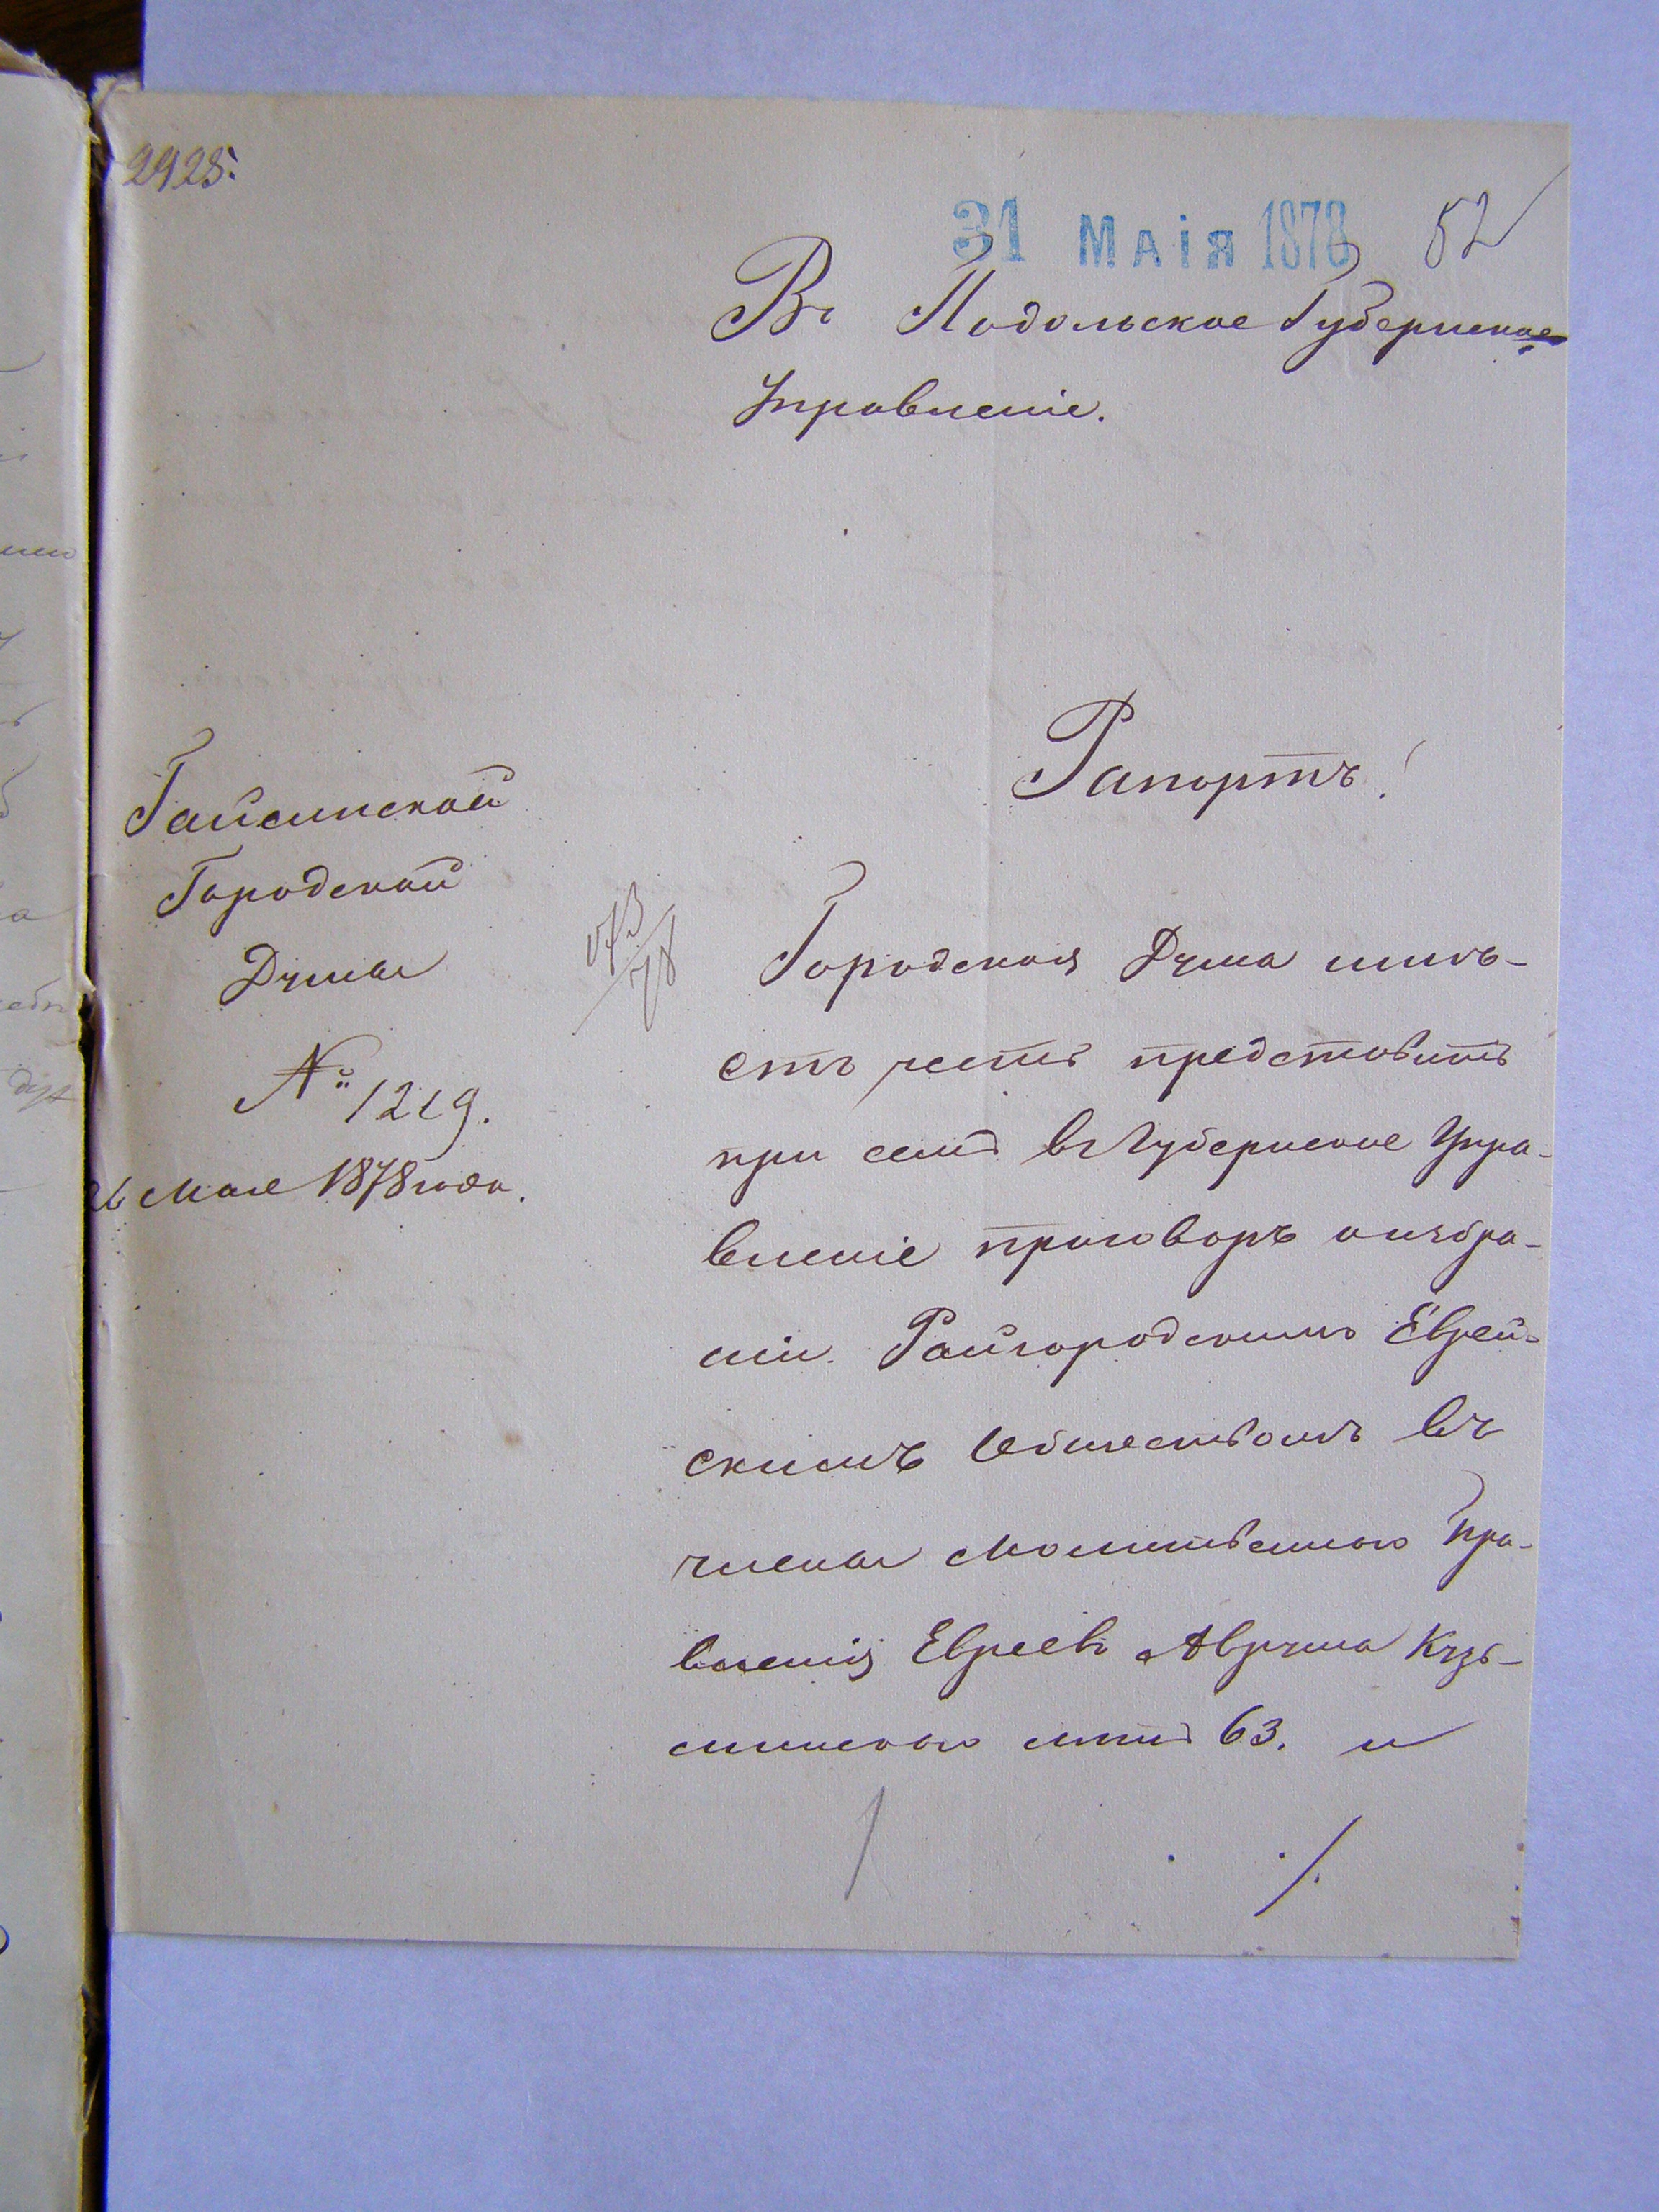 2925.
31 МАІЯ 1878
52
Въ Подольское Губернское
Управленіе.
Рапортъ!
Гайсинской
Городской
Думы
№ 1219.
26 Мая 1878 года.
Городская Дума имѣ-
етъ честь представить
при семъ въ Губернское Упра-
вленіе приговоръ о избра-
ніи Райгородскимъ Еврей-
скимъ Обществомъ въ
члены Молитвенного Пра-
вленія Евреевъ Аврума Кузь-
минского лѣтъ 63. и